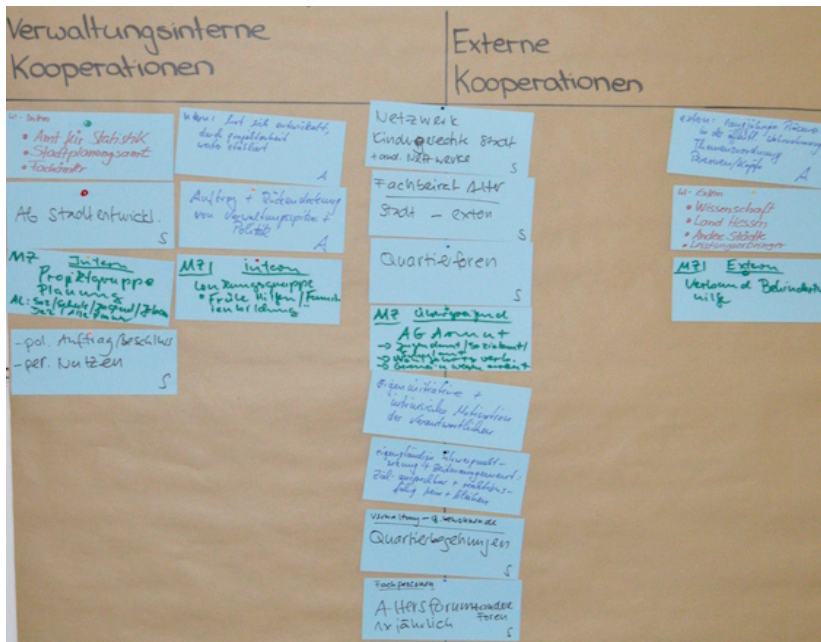 Verwaltungsinterne
Kooperationen
Externe
Kooperationen
W- Intern
• Amt für Statistik
• Stadtplanungsamt
• Fachämter
AG Stadtentwickl.
S
MZ Intern
Projektgruppe
Planung
- pol. Auftrag/Beschluss
- per. Nutzen
S
intern: hat sich entwickelt,
A
Auftrag + Rückendeckung
von Verwaltungsspitze +
Politik
A
MZ1 intern
Lenkungsgruppe
• Frühe Hilfen/Famili-
enbildung
Netzwerk
Kindgerechte Stadt
+ and. Netzwerke
S
Fachbeirat Alter
Stadt - extern
S
Quartierforen
S
MZ übergreifend
AG Armut
→ Jugendamt/Sozialamt/
→ Wohlfahrtsverb.
Eigeninitiative +
intrinsische Motivation
der Verantwortlichen
eigenständige Schwerpunkt-
setzung +
Verwaltung -
Quartierbegehungen
S
Fachpersonen
Altersforum andere
Foren
1x jährlich
S
extern: langjährige Präsenz
in der
Themensetzung
Personen/Köpfe
A
W- Extern
• Wissenschaft
• Land Hessen
• Andere Städte
• Leistungserbringer
MZ1 Extern
Verbund Behinderten
hilfe